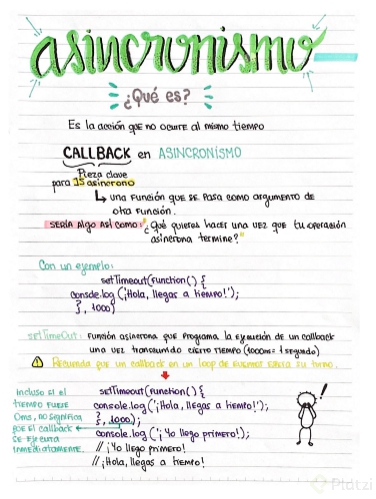 asincronismo
¿Qué es?
Es la acción que no ocurre al mismo tiempo
CALLBACK en ASINCRONISMO
Pieza clave
para JS asíncrono
una Función que se Pasa como argumento de
otra Función.
Sería Algo Así como: "¿Qué quieres hacer una vez que tu operación
asíncrona termine?"
Con un ejemplo:
setTimeout(Function() {
console.log('¡Hola, llegas a tiempo!');
}, 1000)
setTimeOut: Función asíncrona que programa la ejecución de un callback
una vez transcurrido cierto tiempo (1000m = 1 segundo)
Recuerda que un callback en un loop de eventos espera su turno.
Incluso si el
tiempo fuese
0ms, no significa
que el callback
se ejecuta
inmediatamente.
setTimeout(Function() {
console.log('¡Hola, llegas a tiempo!');
}, 1000);
console.log('¡Yo llego primero!');
// ¡Yo llego primero!
// ¡Hola, llegas a tiempo!
Platzi